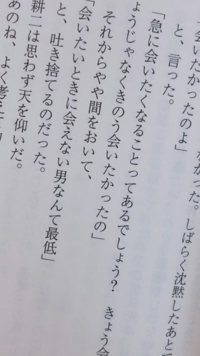 なかった。しばらく沈黙したあとで
会いたかったのよ」
と、言った。
「急に会いたくなることってあるでしょう？　きょう会
ょうじゃなくきのう会いたかったの」
それからやや間をおいて、
「会いたいときに会えない男なんて最低」
と、吐き捨てるのだった。
耕二は思わず天を仰いだ。
あのね、よく考え